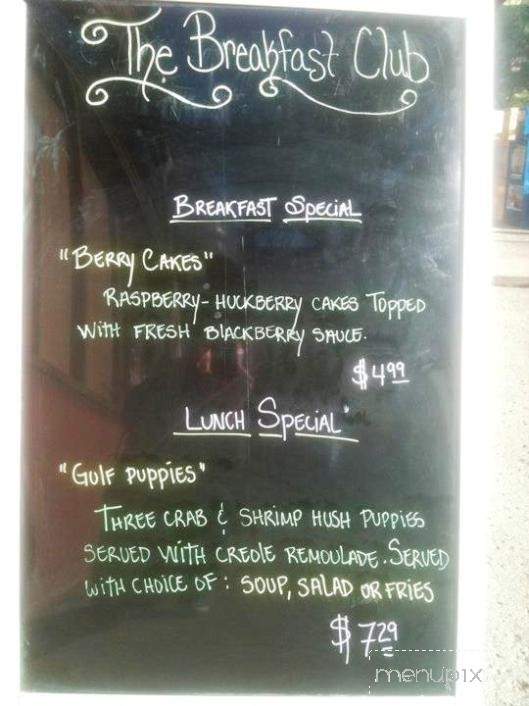 The Breakfast Club
BREAKFAST SPECIAL
"BERRY CAKES"
RASPBERRY-HUCKBERRY CAKES TOPPED
WITH FRESH BLACKBERRY SAUCE.
$4.99
LUNCH SPECIAL
"GULF PUPPIES"
THREE CRAB & SHRIMP HUSH PUPPIES
SERVED WITH CREOLE REMOULADE. SERVED
WITH CHOICE OF: SOUP, SALAD OR FRIES
$7.29
menupix